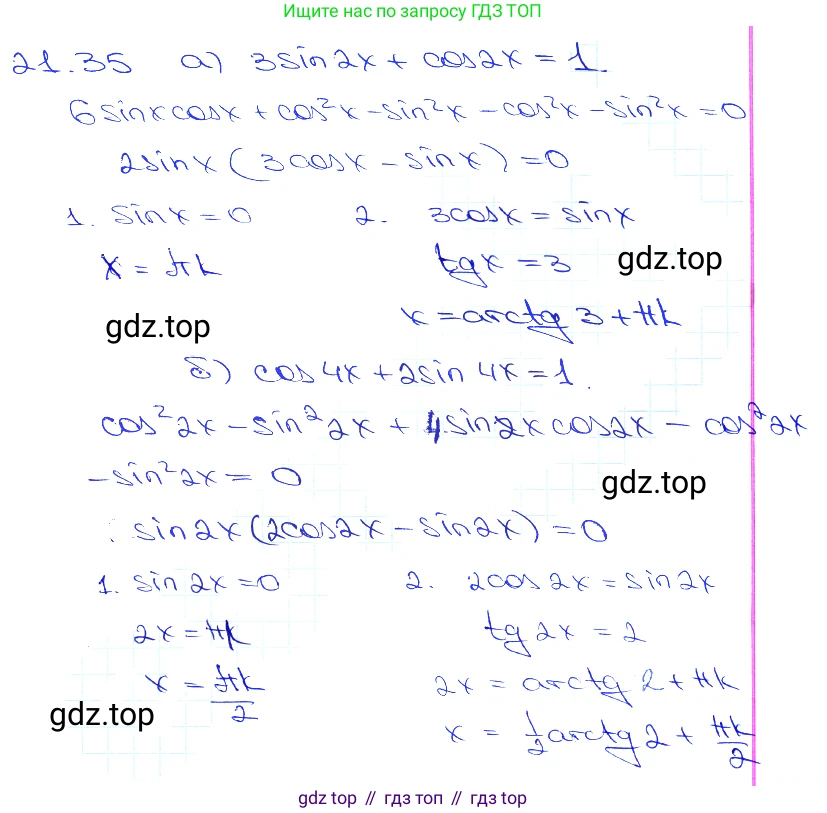 Ищите нас по запросу ГДЗ ТОП
21.35 а) 3sin2x + cos2x = 1.
6sinxcosx + cos²x - sin²x - cos²x - sin²x = 0
2sinx (3cosx - sinx) = 0
1. sinx = 0 2. 3cosx = sinx
x = πk tgx = 3 gdz.top
x = arctg 3 + πk
gdz.top
б) cos4x + 2sin4x = 1.
cos²2x - sin²2x + 4sin2xcos2x - cos²2x
- sin²2x = 0
gdz.top
sin2x (2cos2x - sin2x) = 0
1. sin2x = 0 2. 2cos2x = sin2x
2x = πk tg2x = 2
x = πk/2 2x = arctg 2 + πk
gdz.top x = 1/2 arctg 2 + πk/2
gdz top // гдз топ // гдз top